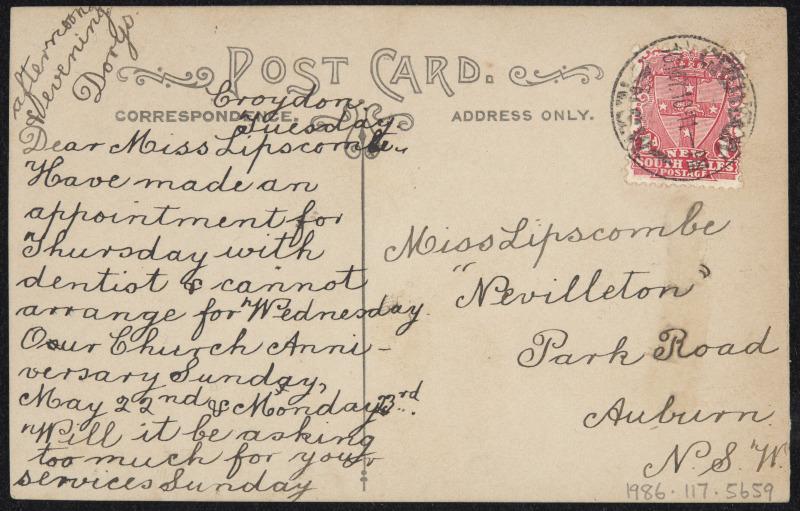 afternoon
& evening
Dorys.
POST CARD.
CORRESPONDENCE.
ADDRESS ONLY.
Croydon,
Tuesday.
Dear Miss Lipscombe,
Have made an
appointment for
Thursday with
dentist & cannot
arrange for Wednesday.
Our Church Anni-
versary Sunday,
May 22nd & Monday 23rd.
Will it be asking
too much for your
services Sunday
Miss Lipscombe
"Nevilleton"
Park Road
Auburn
N.S.W.
NEW
SOUTH WALES
POSTAGE
1986.117.5659